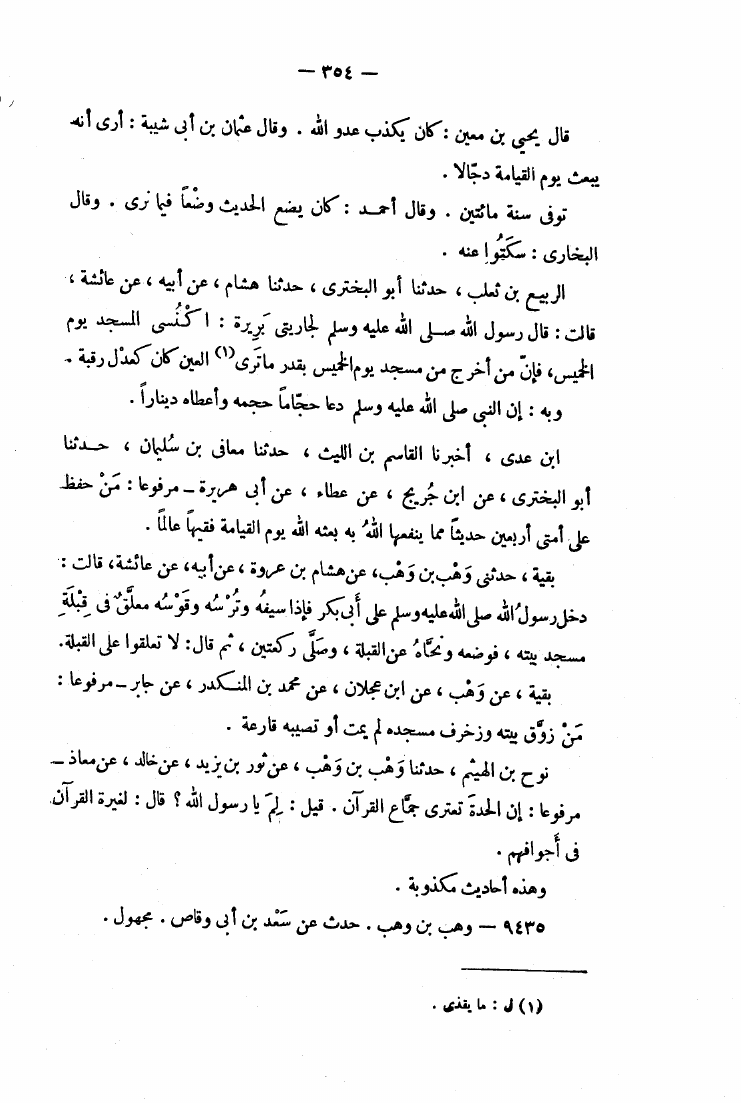 — ٣٥٤ —
قال يحيى بن معين : كان يكذب عدو الله . وقال عثمان بن أبى شيبة : أرى أنه
يبعث يوم القيامة دجّالا .
توفى سنة مائتين . وقال أحمد : كان يضع الحديث وضْعاً فيما نرى . وقال
البخارى : سكَتُوا عنه .
الربيع بن ثعلب ، حدثنا أبو البخترى ، حدثنا هشام ، عن أبيه ، عن عائشة ،
قالت : قال رسول الله صلى الله عليه وسلم لجاريتى بَرِيرة : اكْنُسى المسجد يوم
الخميس، فإنّ من أخرج من مسجد يوم الخميس بقدر ماتَرى(١) العين كان كعدْل رقبة .
وبه : إن النبى صلى الله عليه وسلم دعا حجّاماً حجمه وأعطاه ديناراً .
ابن عدى ، أخبرنا القاسم بن الليث ، حدثنا معافى بن سُليمان ، حدثنا
أبو البخترى ، عن ابن جُريج ، عن عطاء ، عن أبى هريرة – مرفوعا : مَنْ حفظ
على أمتى أربعين حديثاً مما ينفعها اللهُ به بعثه الله يوم القيامة فقيهاً عالماً .
بقية ، حدثنى وَهْب بن وَهْب، عن هشام بن عروة ، عن أبيه، عن عائشة، قالت :
دخل رسولُ الله صلى الله عليه وسلم على أَبى بكر فإذا سيفُه وتُرْسُه وقَوْسُه معلَّقٌ فى قِبْلَةِ
مسجد بيته ، فوضعه ونحَّاهُ عن القبلة ، وصَلَّى ركعتين ، ثم قال : لا تعلقوا على القبلة.
بقية ، عن وَهْب ، عن ابن عجلان ، عن محمد بن المنكدر ، عن جابر – مرفوعا :
مَنْ زوَّق بيته وزخرف مسجده لم يمت أو تصيبه قارعة .
نوح بن الهيثم ، حدثنا وَهْب بن وَهْب ، عن ثور بن يزيد ، عن خالد ، عن معاذ –
مرفوعا : إن الحدةَ تعترى جمَّاع القرآن . قيل : لِمَ يا رسول الله ؟ قال : لغيرة القرآن
فى أَجوافهم .
وهذه أحاديث مكذوبة .
٩٤٣٥ – وهب بن وهب . حدث عن سَعْد بن أبى وقاص . مجهول .
(١) ل : ما يقذى .